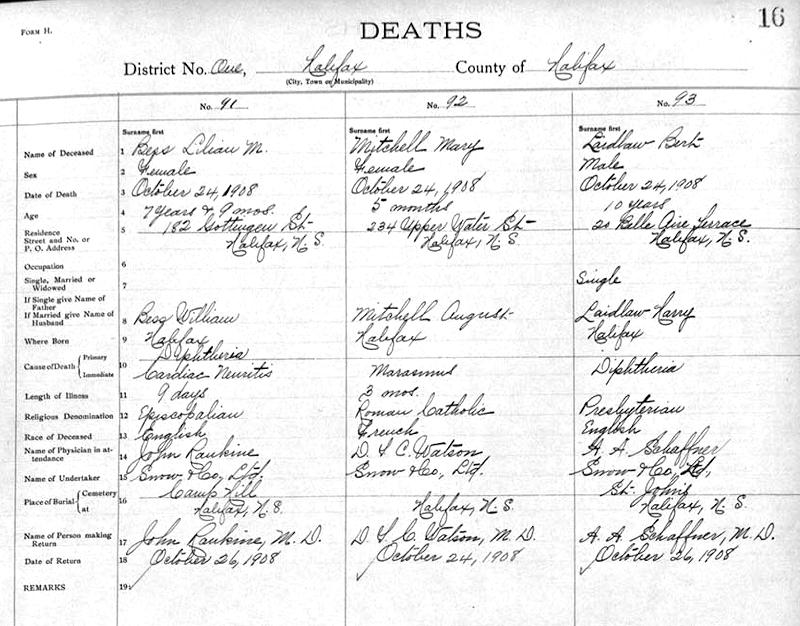 FORM H.
DEATHS
16
District No. One, Halifax County of Halifax
(City, Town or Municipality)
No. 91 No. 92 No. 93
Surname first Surname first Surname first
Name of Deceased 1 Bess Lilian M. Mitchell Mary Laidlaw Bert
Sex 2 Female Female Male
Date of Death 3 October 24, 1908 October 24, 1908 October 24, 1908
Age 4 7 years & 9 mos. 5 months 10 years
Residence 5 182 Gottingen St- 234 Upper Water St- 20 Belle Aire Terrace
Street and No. or
P. O. Address Halifax, N. S. Halifax, N. S. Halifax, N. S.
Occupation 6
Single, Married or
Widowed 7 Single
If Single give Name of
Father
If Married give Name of
Husband 8 Bess William Mitchell August Laidlaw Harry
Where Born 9 Halifax Halifax Halifax
Cause of Death { Primary 10 Diphtheria Diphtheria
Immediate Cardiac Neuritis Marasmus
Length of Illness 11 9 days 3 mos.
Religious Denomination 12 Episcopalian Roman Catholic Presbyterian
Race of Deceased 13 English French English
Name of Physician in at-
tendance 14 John Rankine D. S. C. Watson A. A. Schaffner
Name of Undertaker 15 Snow & Co, Ltd. Snow & Co, Ltd. Snow & Co, Ltd.
Place of Burial { Cemetery 16 Camp Hill St. Johns
at Halifax, N. S. Halifax, N. S. Halifax, N. S.
Name of Person making
Return 17 John Rankine, M. D. D. S. C. Watson, M. D. A. A. Schaffner, M. D.
Date of Return 18 October 26, 1908 October 24, 1908 October 26, 1908
REMARKS 19